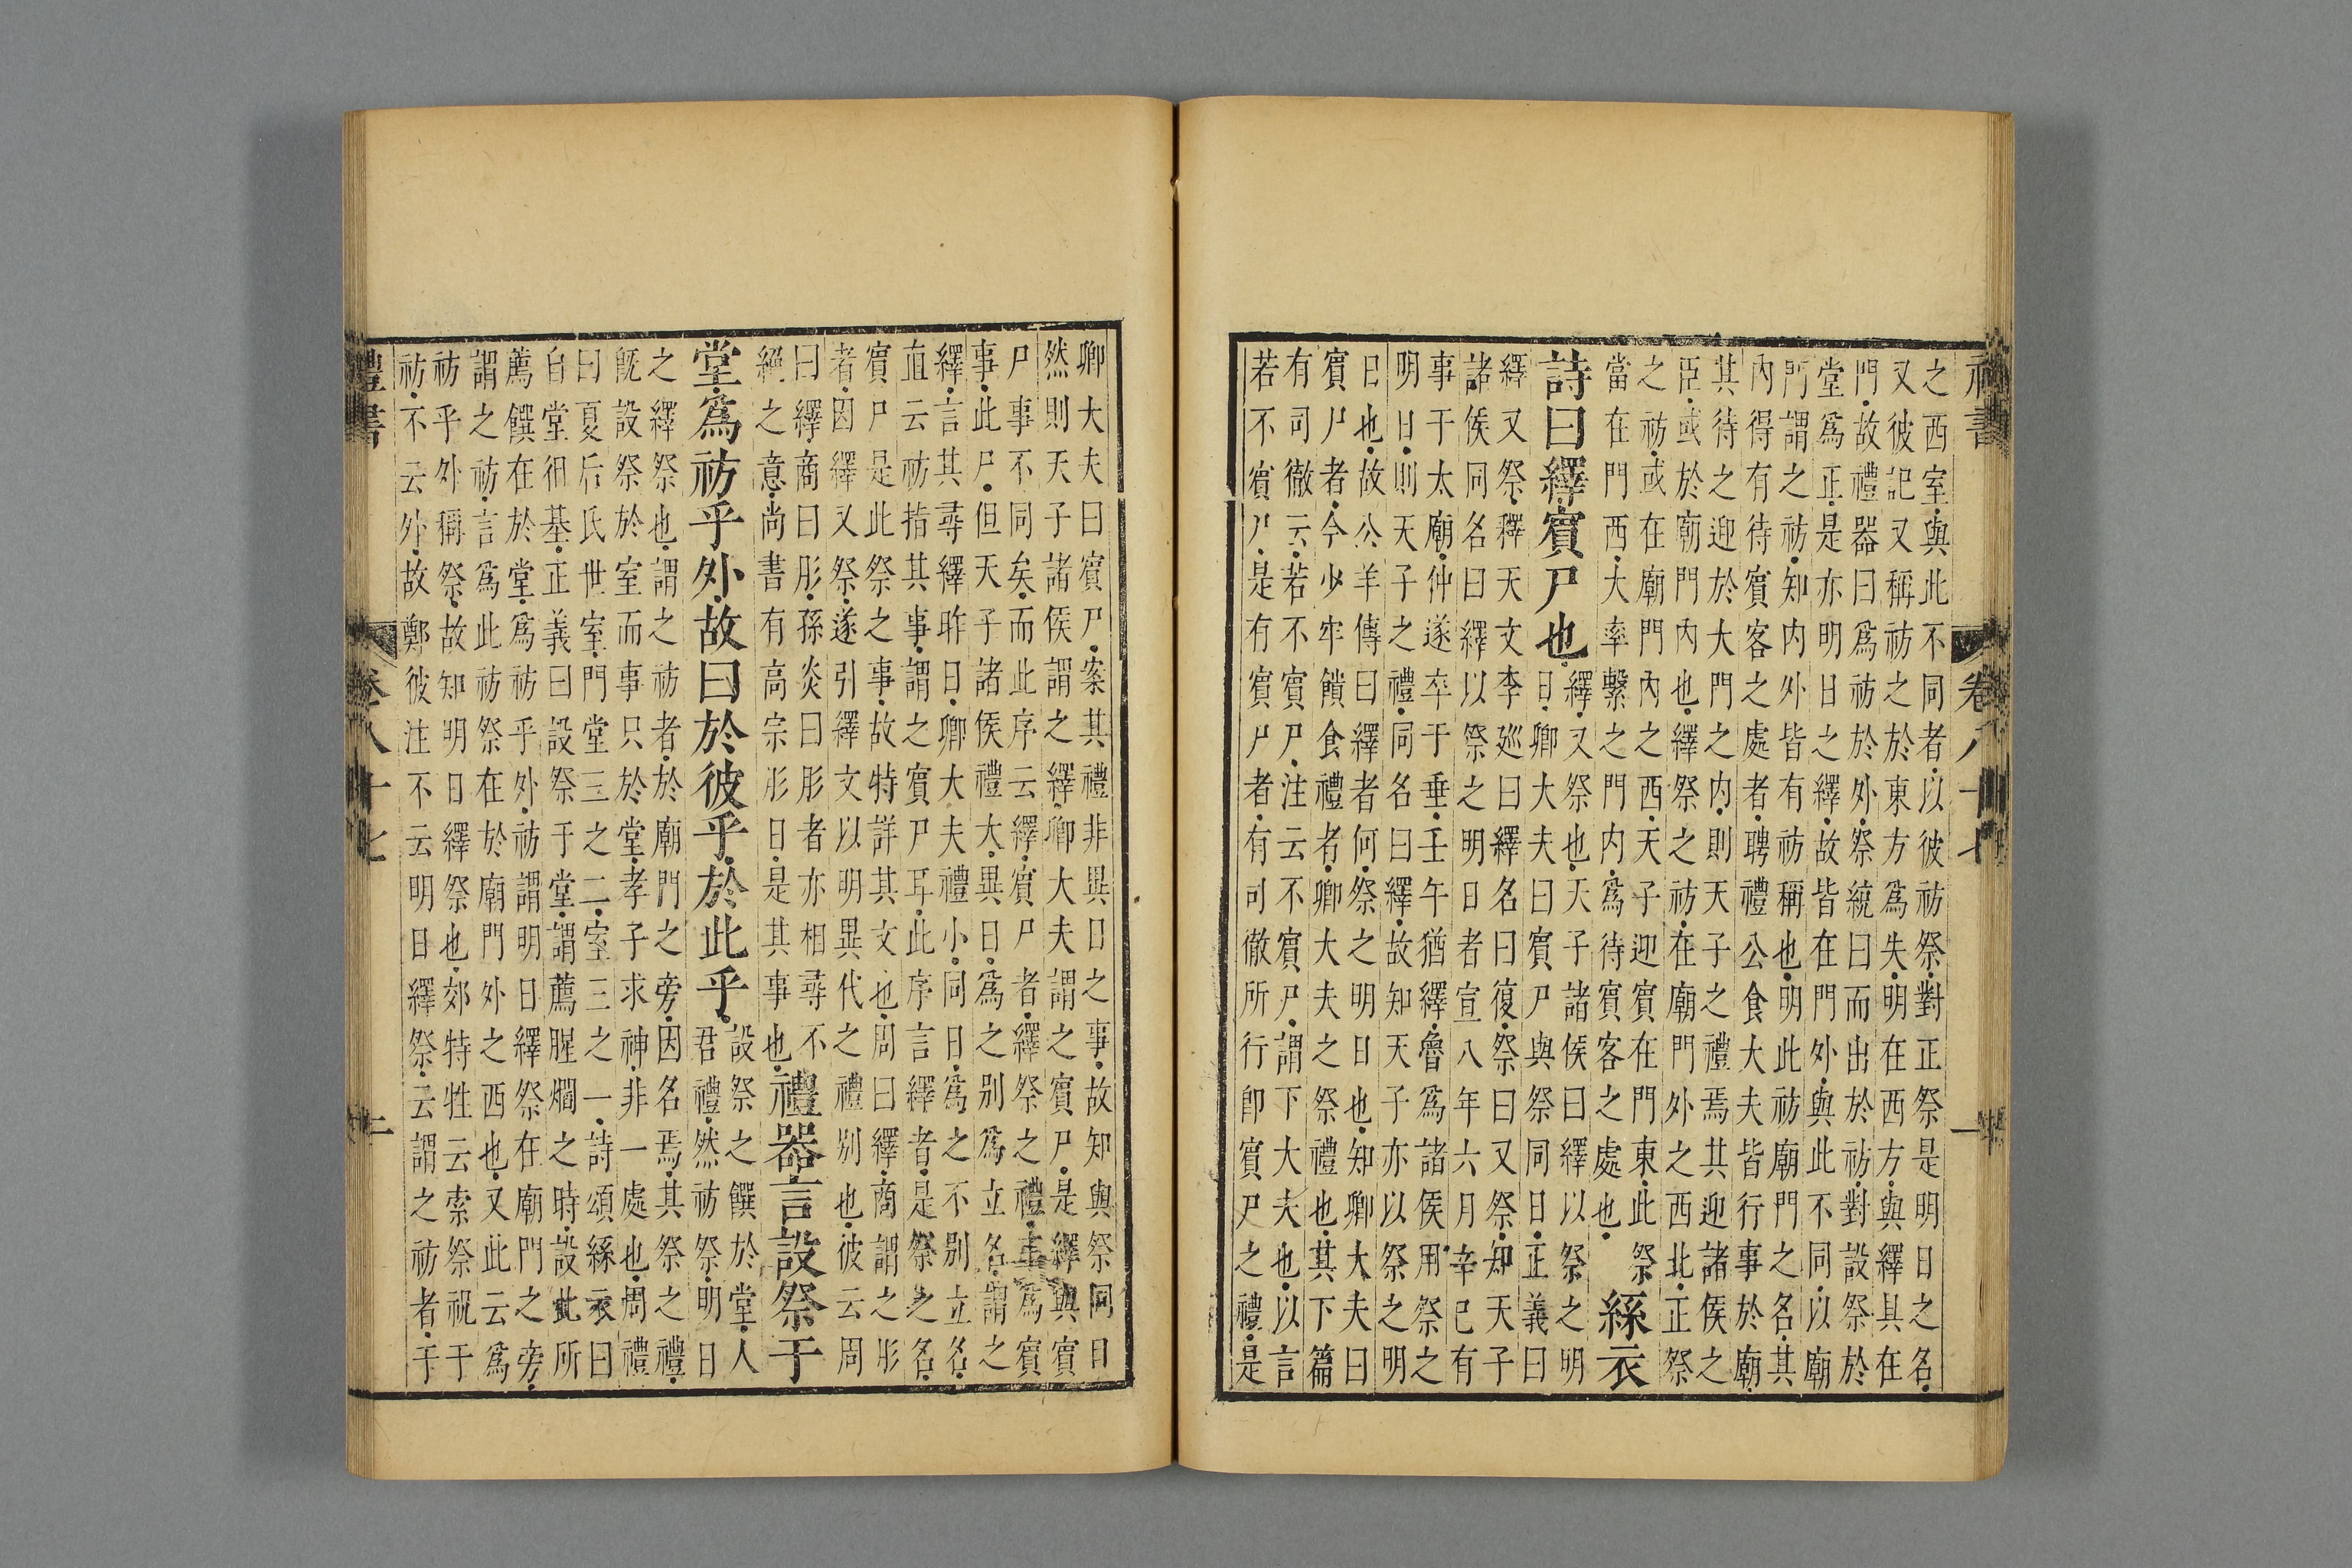 禮書 卷八十七 一
之西室與此不同者以彼祊祭對正祭是明日之名
又彼記又稱祊之於東方爲失明在西方與繹具在
門故禮器曰爲祊於外祭統曰而出於祊對設祭於
堂爲正是亦明日之繹故皆在門外與此不同以廟
門謂之祊知内外皆有祊稱也明此祊廟門之名其
內得有待賓客之處者聘禮公食大夫皆行事於廟
其待之迎於大門之内則天子之禮焉其迎諸侯之
臣或於廟門內也繹祭之祊在廟門外之西北正祭
之祊或在廟門內之西天子迎賓在門東此祭
當在門西大率繫之門内爲待賓客之處也
絲衣
詩曰繹賓尸也
繹又祭也天子諸侯曰繹以祭之明
日卿大夫曰賓尸與祭同日正義曰
繹又祭釋天文李廵曰繹名曰復祭曰又祭知天子
諸侯同名曰繹以祭之明日者宣八年六月辛巳有
事于太廟仲遂卒于垂壬午猶繹魯爲諸侯用祭之
明日則天子之禮同名曰繹故知天子亦以祭之明
日也故公羊傳曰繹者何祭之明日也知卿大夫曰
賓尸者今少牢饋食禮者卿大夫之祭禮也其下篇
有司徹云若不賓尸注云不賓尸謂下大夫也以言
若不賓尸是有賓尸者有司徹所行卽賓尸之禮是
卿大夫曰賓尸案其禮非異日之事故知與祭同日
然則天子諸侯謂之繹卿大夫謂之賓尸是繹與賓
尸事不同矣而此序云繹賓尸者繹祭之禮主爲賓
事此尸但天子諸侯禮大異日爲之别爲立名謂之
繹言其尋繹昨日卿大夫禮小同日爲之不别立名
直云祊指其事謂之賓尸耳此序言繹者是祭之名
賓尸是此祭之事故特詳其文也周曰繹商謂之肜
者因繹又祭遂引繹文以明異代之禮别也彼云周
曰繹商曰肜孫炎曰肜者亦相尋不
絕之意尚書有高宗肜日是其事也
禮器言設祭于
堂爲祊乎外故曰於彼乎於此乎
設祭之饌於堂人
君禮然祊祭明日
之繹祭也謂之祊者於廟門之旁因名焉其祭之禮
既設祭於室而事只於堂孝子求神非一處也周禮
曰夏后氏世室門堂三之二室三之一詩頌絲衣曰
自堂徂基正義曰設祭于堂謂薦腥爓之時設此所
薦饌在於堂爲祊乎外祊謂明日繹祭在廟門之旁
謂之祊言爲此祊祭在於廟門外之西也又此云爲
祊乎外稱祭故知明日繹祭也郊特牲云索祭祝于
祊不云外故鄭彼注不云明日繹祭云謂之祊者于
禮書 卷八十七 二